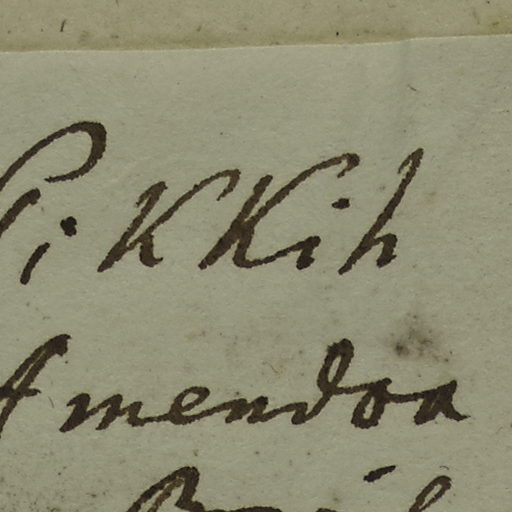 Pikkih
Amendoa